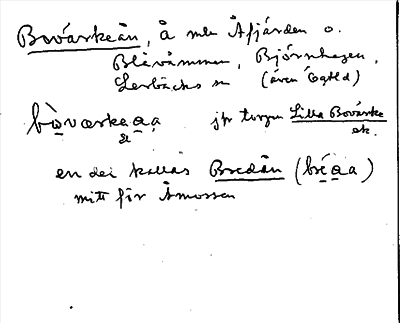 Bovårkeån, å mln Åfjärden o.
Blåvämmen, Björnhagen,
Lerbäcks sn (även
bòvœrkeaa jfr torpen Lilla Bovårke
en del kallas Bredån (bréaa)
mitt för Åmossen